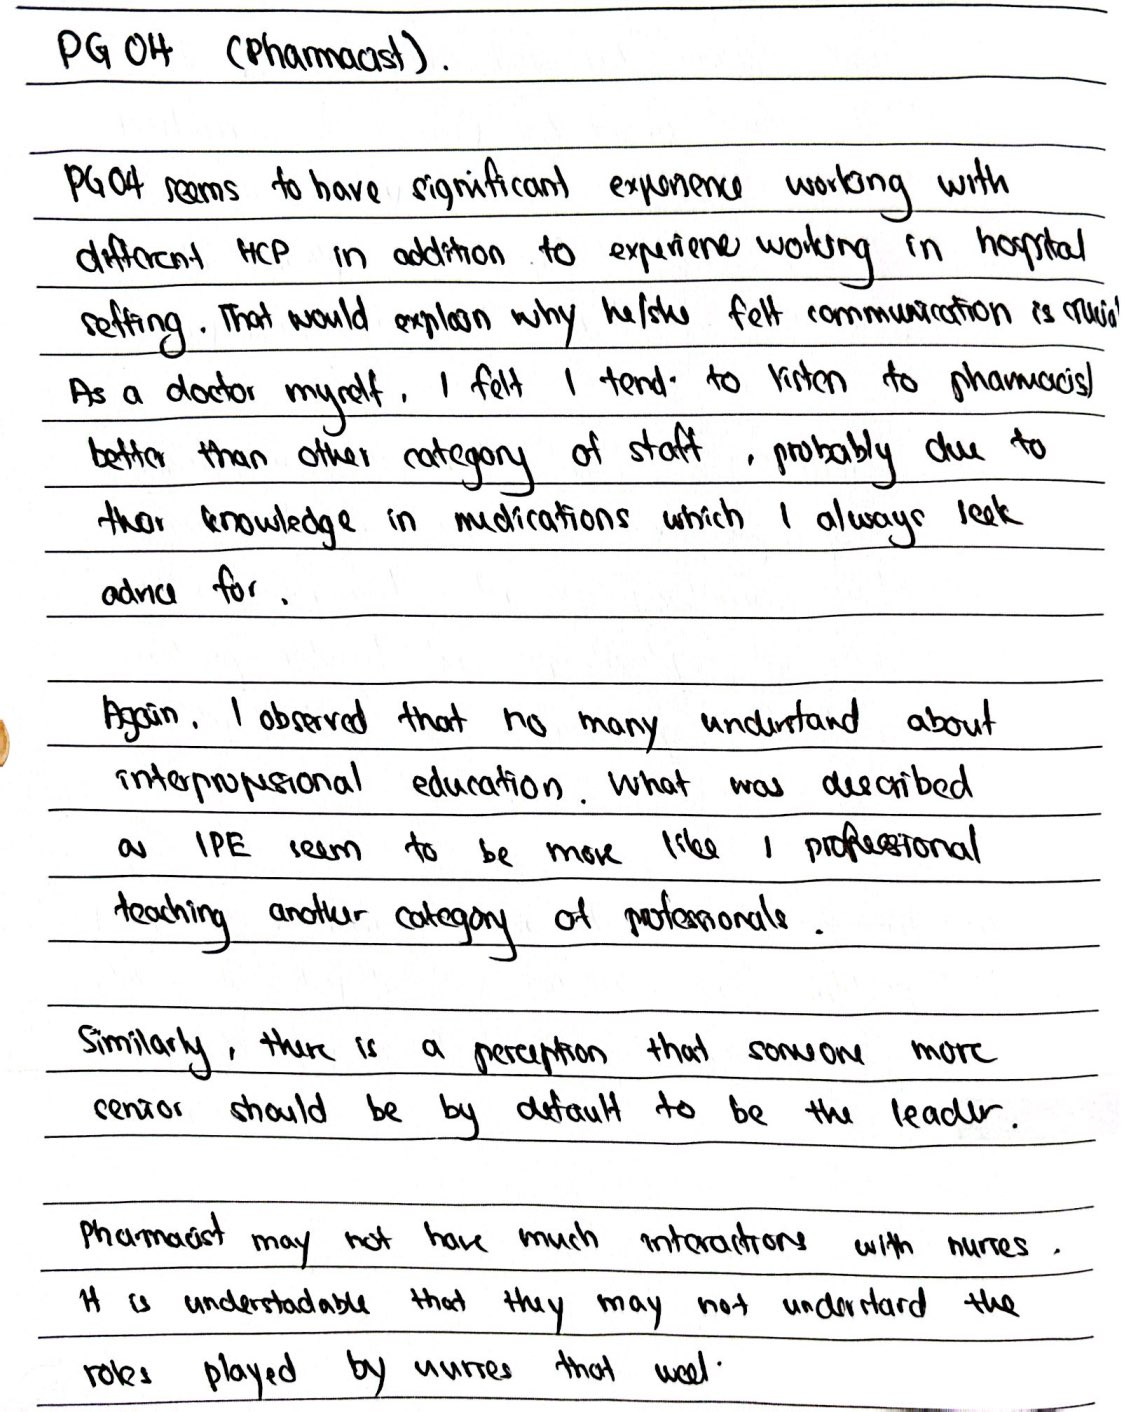 PG 04 (Pharmacist).
PG04 seems to have significant experience working with
different HCP in addition to experiene working in hospital
setting. That would explain why he/she felt communication is crucial
As a doctor myself, I felt I tend to listen to pharmacist
better than other category of staff, probably due to
their knowledge in medications which I always seek
advice for.
Again, I observed that no many understand about
interprofessional education. What was described
as IPE seem to be more like 1 professional
teaching another category of professionals.
Similarly, there is a perception that someone more
senior should be by default to be the leader.
Pharmacist may not have much interactions with nurses.
It is understadable that they may not understand the
roles played by nurses that well.